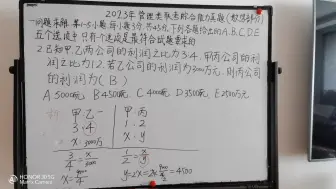 2023年管理类联考综合能力真题(数学部分)
一.问题求解:第1~5小题,每小题3分,共45分,下列各题给出的A,B,C,D,E
五个选项中,只有一个选项是最符合试题要求的
2.已知甲、乙两公司的利润之比为3:4,甲、丙两公司的
利润之比为1:2,若乙公司的利润为3000万元,则丙公司
的利润为( B )
A 5000万元 B 4500万元 C 4000万元 D 3500万元 E 2500万元
甲:乙 甲:丙
3:4 1:2
x:3000万 x:y
3/4=x/3000 1/2=x/y
x=9000/4 y=2x=2×9000/4=4500
HONOR 80 5G